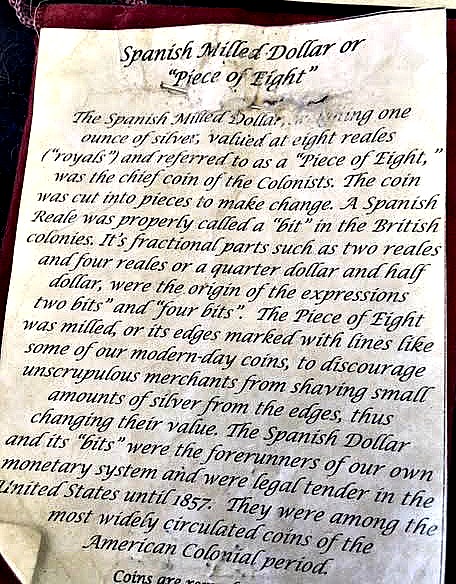 Spanish Milled Dollar or
"Piece of Eight"
The Spanish Milled Dollar, one
ounce of silver, valued at eight reales
("royals") and referred to as a "Piece of Eight,"
was the chief coin of the Colonists. The coin
was cut into pieces to make change. A Spanish
Reale was properly called a "bit" in the British
colonies. It's fractional parts such as two reales
and four reales or a quarter dollar and half
dollar, were the origin of the expressions
two bits" and "four bits". The Piece of Eight
was milled, or its edges marked with lines like
some of our modern-day coins, to discourage
unscrupulous merchants from shaving small
amounts of silver from the edges, thus
changing their value. The Spanish Dollar
and its "bits" were the forerunners of our own
monetary system and were legal tender in the
United States until 1857. They were among the
most widely circulated coins of the
American Colonial period.
Coins are